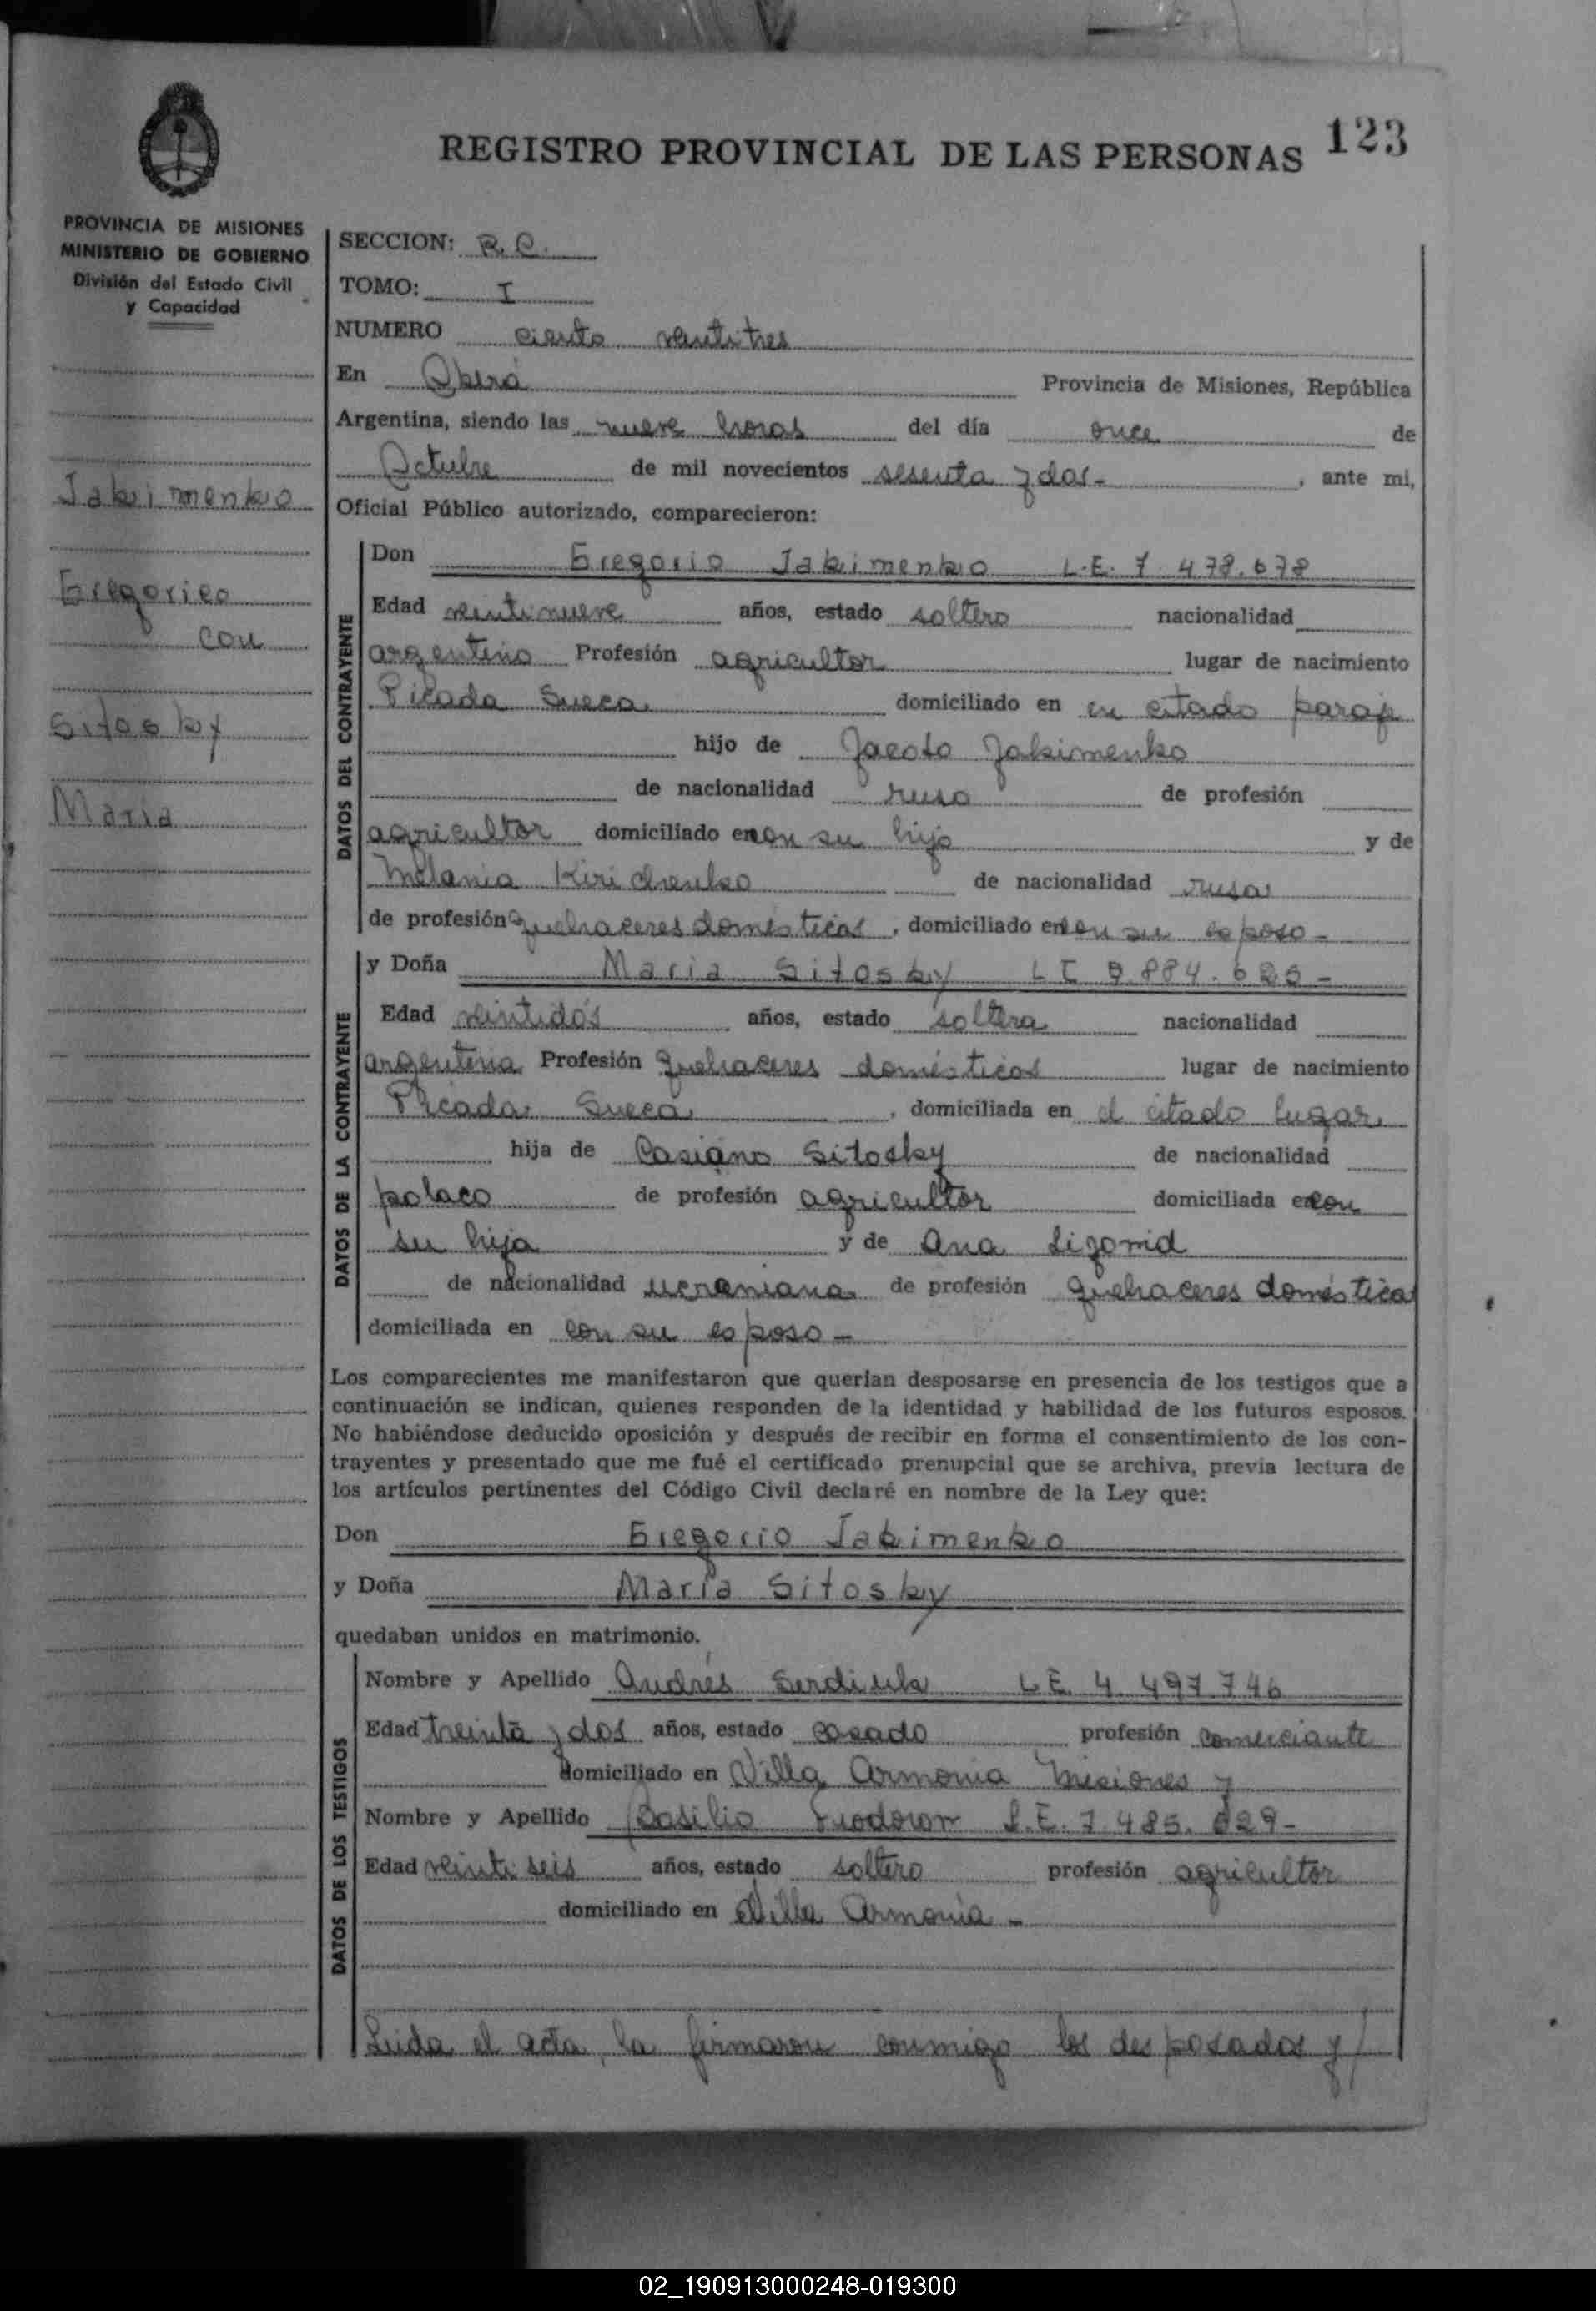 REGISTRO PROVINCIAL DE LAS PERSONAS 123
PROVINCIA DE MISIONES
MINISTERIO DE GOBIERNO
División del Estado Civil
y Capacidad
Jakimenko
Gregorico
con
Sitosky
Maria
SECCION: R.C.
TOMO: I
NUMERO ciento veintitres
En Oberá Provincia de Misiones, República
Argentina, siendo las nueve horas del día once de
Octubre de mil novecientos sesenta y dos- , ante mi,
Oficial Público autorizado, comparecieron:
DATOS DEL CONTRAYENTE
Don Gregorio Jakimenko L.E. 7 478.678
Edad veintinueve años, estado soltero nacionalidad
argentino Profesión agricultor lugar de nacimiento
Picada Sueca domiciliado en en citado paraje
hijo de Jacoto Jakimenko
de nacionalidad ruso de profesión
agricultor domiciliado en con su hijo y de
Melania Kirichenko de nacionalidad rusa
de profesión quehaceres domésticos , domiciliado en con su esposo -
DATOS DE LA CONTRAYENTE
y Doña Maria Sitosky LC 9.884.626 -
Edad veintidós años, estado soltera nacionalidad
argentina Profesión quehaceres domésticos lugar de nacimiento
Picada Sueca , domiciliada en el citado lugar
hija de Casiano Sitosky de nacionalidad
polaco de profesión agricultor domiciliada en con
su hija y de Ana Ligorrid
de nacionalidad ucraniana de profesión quehaceres domésticos
domiciliada en con su esposo -
Los comparecientes me manifestaron que querían desposarse en presencia de los testigos que a
continuación se indican, quienes responden de la identidad y habilidad de los futuros esposos.
No habiéndose deducido oposición y después de recibir en forma el consentimiento de los con-
trayentes y presentado que me fué el certificado prenupcial que se archiva, previa lectura de
los artículos pertinentes del Código Civil declaré en nombre de la Ley que:
Don Gregorio Jakimenko
y Doña María Sitosky
quedaban unidos en matrimonio.
DATOS DE LOS TESTIGOS
Nombre y Apellido Andrés Serdiuk LE. 4 497 746
Edad treinta y dos años, estado casado profesión comerciante
domiciliado en Villa Armonia Misiones y
Nombre y Apellido Basilio L.E. 7.485. 829-
Edad veintiseis años, estado soltero profesión agricultor
domiciliado en Villa Armonía -
Leida el acta, la firmaron conmigo los desposados y/
02_190913000248-019300